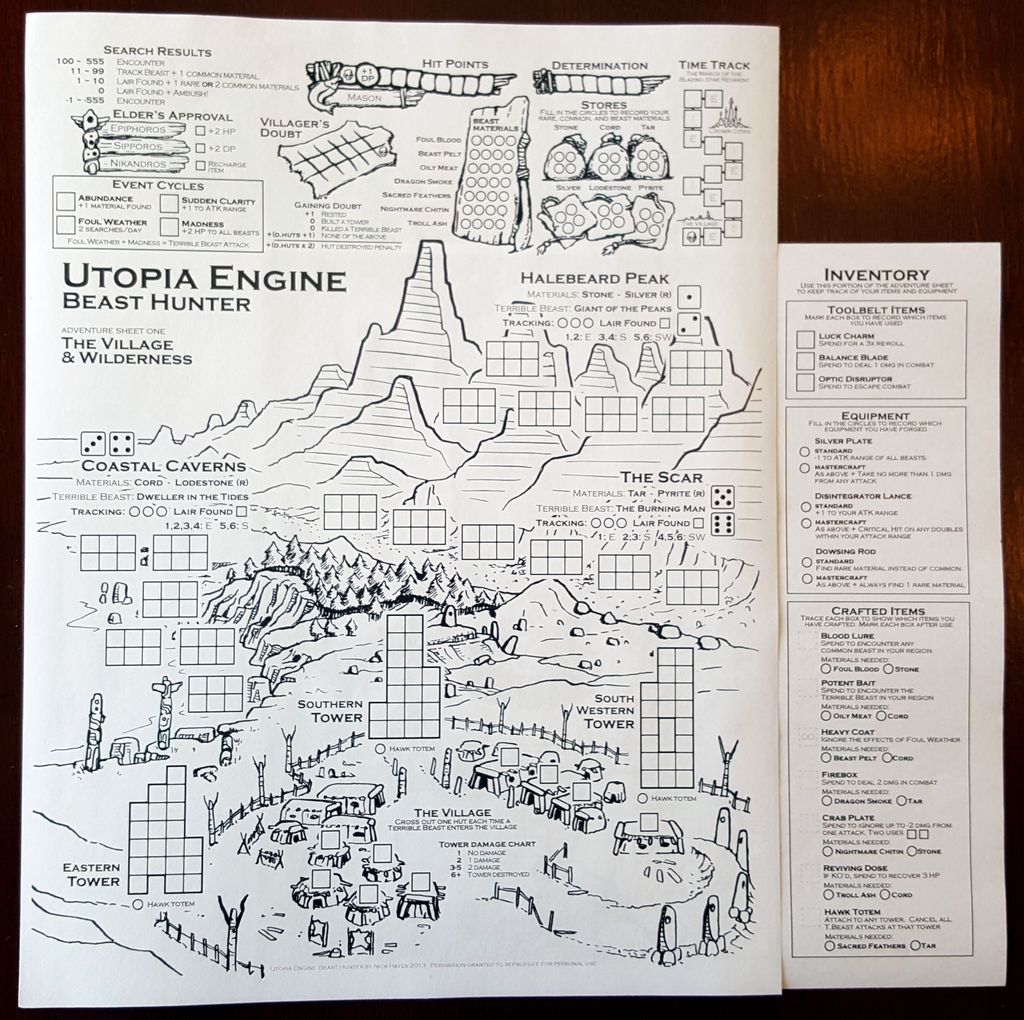 SEARCH RESULTS
100 - 555 ENCOUNTER
11 - 99 TRACK BEAST + 1 COMMON MATERIAL
1 - 10 LAIR FOUND + 1 RARE OR 2 COMMON MATERIALS
0 LAIR FOUND + AMBUSH!
-1 - -555 ENCOUNTER
HIT POINTS
+1 DP
MASON
DETERMINATION
TIME TRACK
THE MARCH OF THE
BLAZING STAR REGIMENT
CROWN CITIES
THE VILLAGE
ELDER'S APPROVAL
EPIPHOROS +2 HP
SIPPOROS +2 DP
NIKANDROS RECHARGE
ITEM
VILLAGER'S
DOUBT
GAINING DOUBT
+1 RESTED
0 BUILT A TOWER
0 KILLED A TERRIBLE BEAST
+(D.HUTS +1) NONE OF THE ABOVE
+(D.HUTS X 2) HUT DESTROYED PENALTY
BEAST
MATERIALS
FOUL BLOOD
BEAST PELT
OILY MEAT
DRAGON SMOKE
SACRED FEATHERS
NIGHTMARE CHITIN
TROLL ASH
STORES
FILL IN THE CIRCLES TO RECORD YOUR
RARE, COMMON, AND BEAST MATERIALS
STONE CORD TAR
SILVER LODESTONE PYRITE
EVENT CYCLES
ABUNDANCE
+1 MATERIAL FOUND
SUDDEN CLARITY
+1 TO ATK RANGE
FOUL WEATHER
2 SEARCHES/DAY
MADNESS
+2 HP TO ALL BEASTS
FOUL WEATHER + MADNESS = TERRIBLE BEAST ATTACK
UTOPIA ENGINE
BEAST HUNTER
ADVENTURE SHEET ONE
THE VILLAGE
& WILDERNESS
HALEBEARD PEAK
MATERIALS: STONE - SILVER (R)
TERRIBLE BEAST: GIANT OF THE PEAKS
TRACKING: LAIR FOUND
1,2: E 3,4: S 5,6: SW
COASTAL CAVERNS
MATERIALS: CORD - LODESTONE (R)
TERRIBLE BEAST: DWELLER IN THE TIDES
TRACKING: LAIR FOUND
1,2,3,4: E 5,6: S
THE SCAR
MATERIALS: TAR - PYRITE (R)
TERRIBLE BEAST: THE BURNING MAN
TRACKING: LAIR FOUND
1: E 2,3: S 4,5,6: SW
SOUTHERN
TOWER
HAWK TOTEM
SOUTH
WESTERN
TOWER
HAWK TOTEM
EASTERN
TOWER
HAWK TOTEM
THE VILLAGE
CROSS OUT ONE HUT EACH TIME A
TERRIBLE BEAST ENTERS THE VILLAGE
TOWER DAMAGE CHART
1 NO DAMAGE
2 1 DAMAGE
3-5 2 DAMAGE
6+ TOWER DESTROYED
UTOPIA ENGINE: BEAST HUNTER BY NICK HAYES 2013 PERMISSION GRANTED TO REPRODUCE FOR PERSONAL USE
INVENTORY
USE THIS PORTION OF THE ADVENTURE SHEET
TO KEEP TRACK OF YOUR ITEMS AND EQUIPMENT
TOOLBELT ITEMS
MARK EACH BOX TO RECORD WHICH ITEMS
YOU HAVE USED
LUCK CHARM
SPEND FOR A 3X RE-ROLL
BALANCE BLADE
SPEND TO DEAL 1 DMG IN COMBAT
OPTIC DISRUPTOR
SPEND TO ESCAPE COMBAT
EQUIPMENT
FILL IN THE CIRCLES TO RECORD WHICH
EQUIPMENT YOU HAVE FORGED
SILVER PLATE
STANDARD
-1 TO ATK RANGE OF ALL BEASTS
MASTERCRAFT
AS ABOVE + TAKE NO MORE THAN 1 DMG
FROM ANY ATTACK
DISINTEGRATOR LANCE
STANDARD
+1 TO YOUR ATK RANGE
MASTERCRAFT
AS ABOVE + CRITICAL HIT ON ANY DOUBLES
WITHIN YOUR ATTACK RANGE
DOWSING ROD
STANDARD
FIND RARE MATERIAL INSTEAD OF COMMON
MASTERCRAFT
AS ABOVE + ALWAYS FIND 1 RARE MATERIAL
CRAFTED ITEMS
TRACE EACH BOX TO SHOW WHICH ITEMS YOU
HAVE CRAFTED. MARK EACH BOX AFTER USE
BLOOD LURE
SPEND TO ENCOUNTER ANY
COMMON BEAST IN YOUR REGION
MATERIALS NEEDED:
FOUL BLOOD STONE
POTENT BAIT
SPEND TO ENCOUNTER THE
TERRIBLE BEAST IN YOUR REGION
MATERIALS NEEDED:
OILY MEAT CORD
HEAVY COAT
IGNORE THE EFFECTS OF FOUL WEATHER
MATERIALS NEEDED:
BEAST PELT CORD
FIREBOX
SPEND TO DEAL 2 DMG IN COMBAT
MATERIALS NEEDED:
DRAGON SMOKE TAR
CRAB PLATE
SPEND TO IGNORE UP TO 2 DMG FROM
ONE ATTACK. TWO USES
MATERIALS NEEDED:
NIGHTMARE CHITIN STONE
REVIVING DOSE
IF KO'D, SPEND TO RECOVER 3 HP
MATERIALS NEEDED:
TROLL ASH CORD
HAWK TOTEM
ATTACH TO ANY TOWER. CANCEL ALL
T.BEAST ATTACKS AT THAT TOWER
MATERIALS NEEDED:
SACRED FEATHERS TAR